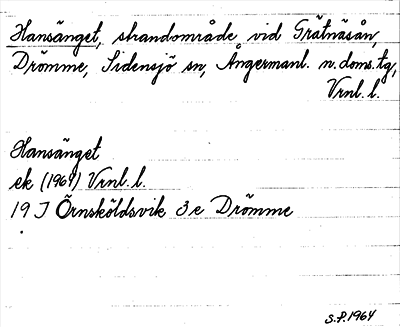 Hansänget, strandområde vid Grätnäsån,
Drömme, Sidensjö sn, Ångermanl. n. doms. tg,
Vrnl. l.
Hansänget
ek (1964) Vrnl. l.
19 J Örnsköldsvik 3 e Drömme
S.P. 1964